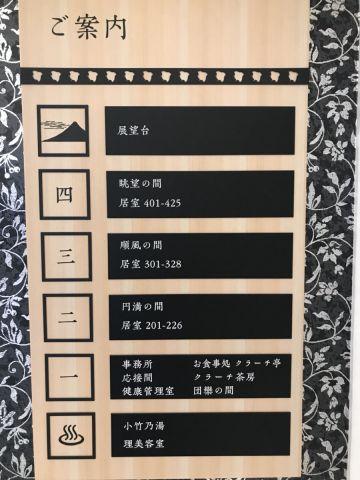 ご案内
展望台
四
眺望の間
居室 401-425
三
順風の間
居室 301-328
二
円満の間
居室 201-226
一
事務所 お食事処 クラーチ亭
応接間 クラーチ茶房
健康管理室 団欒の間
小竹乃湯
理美容室